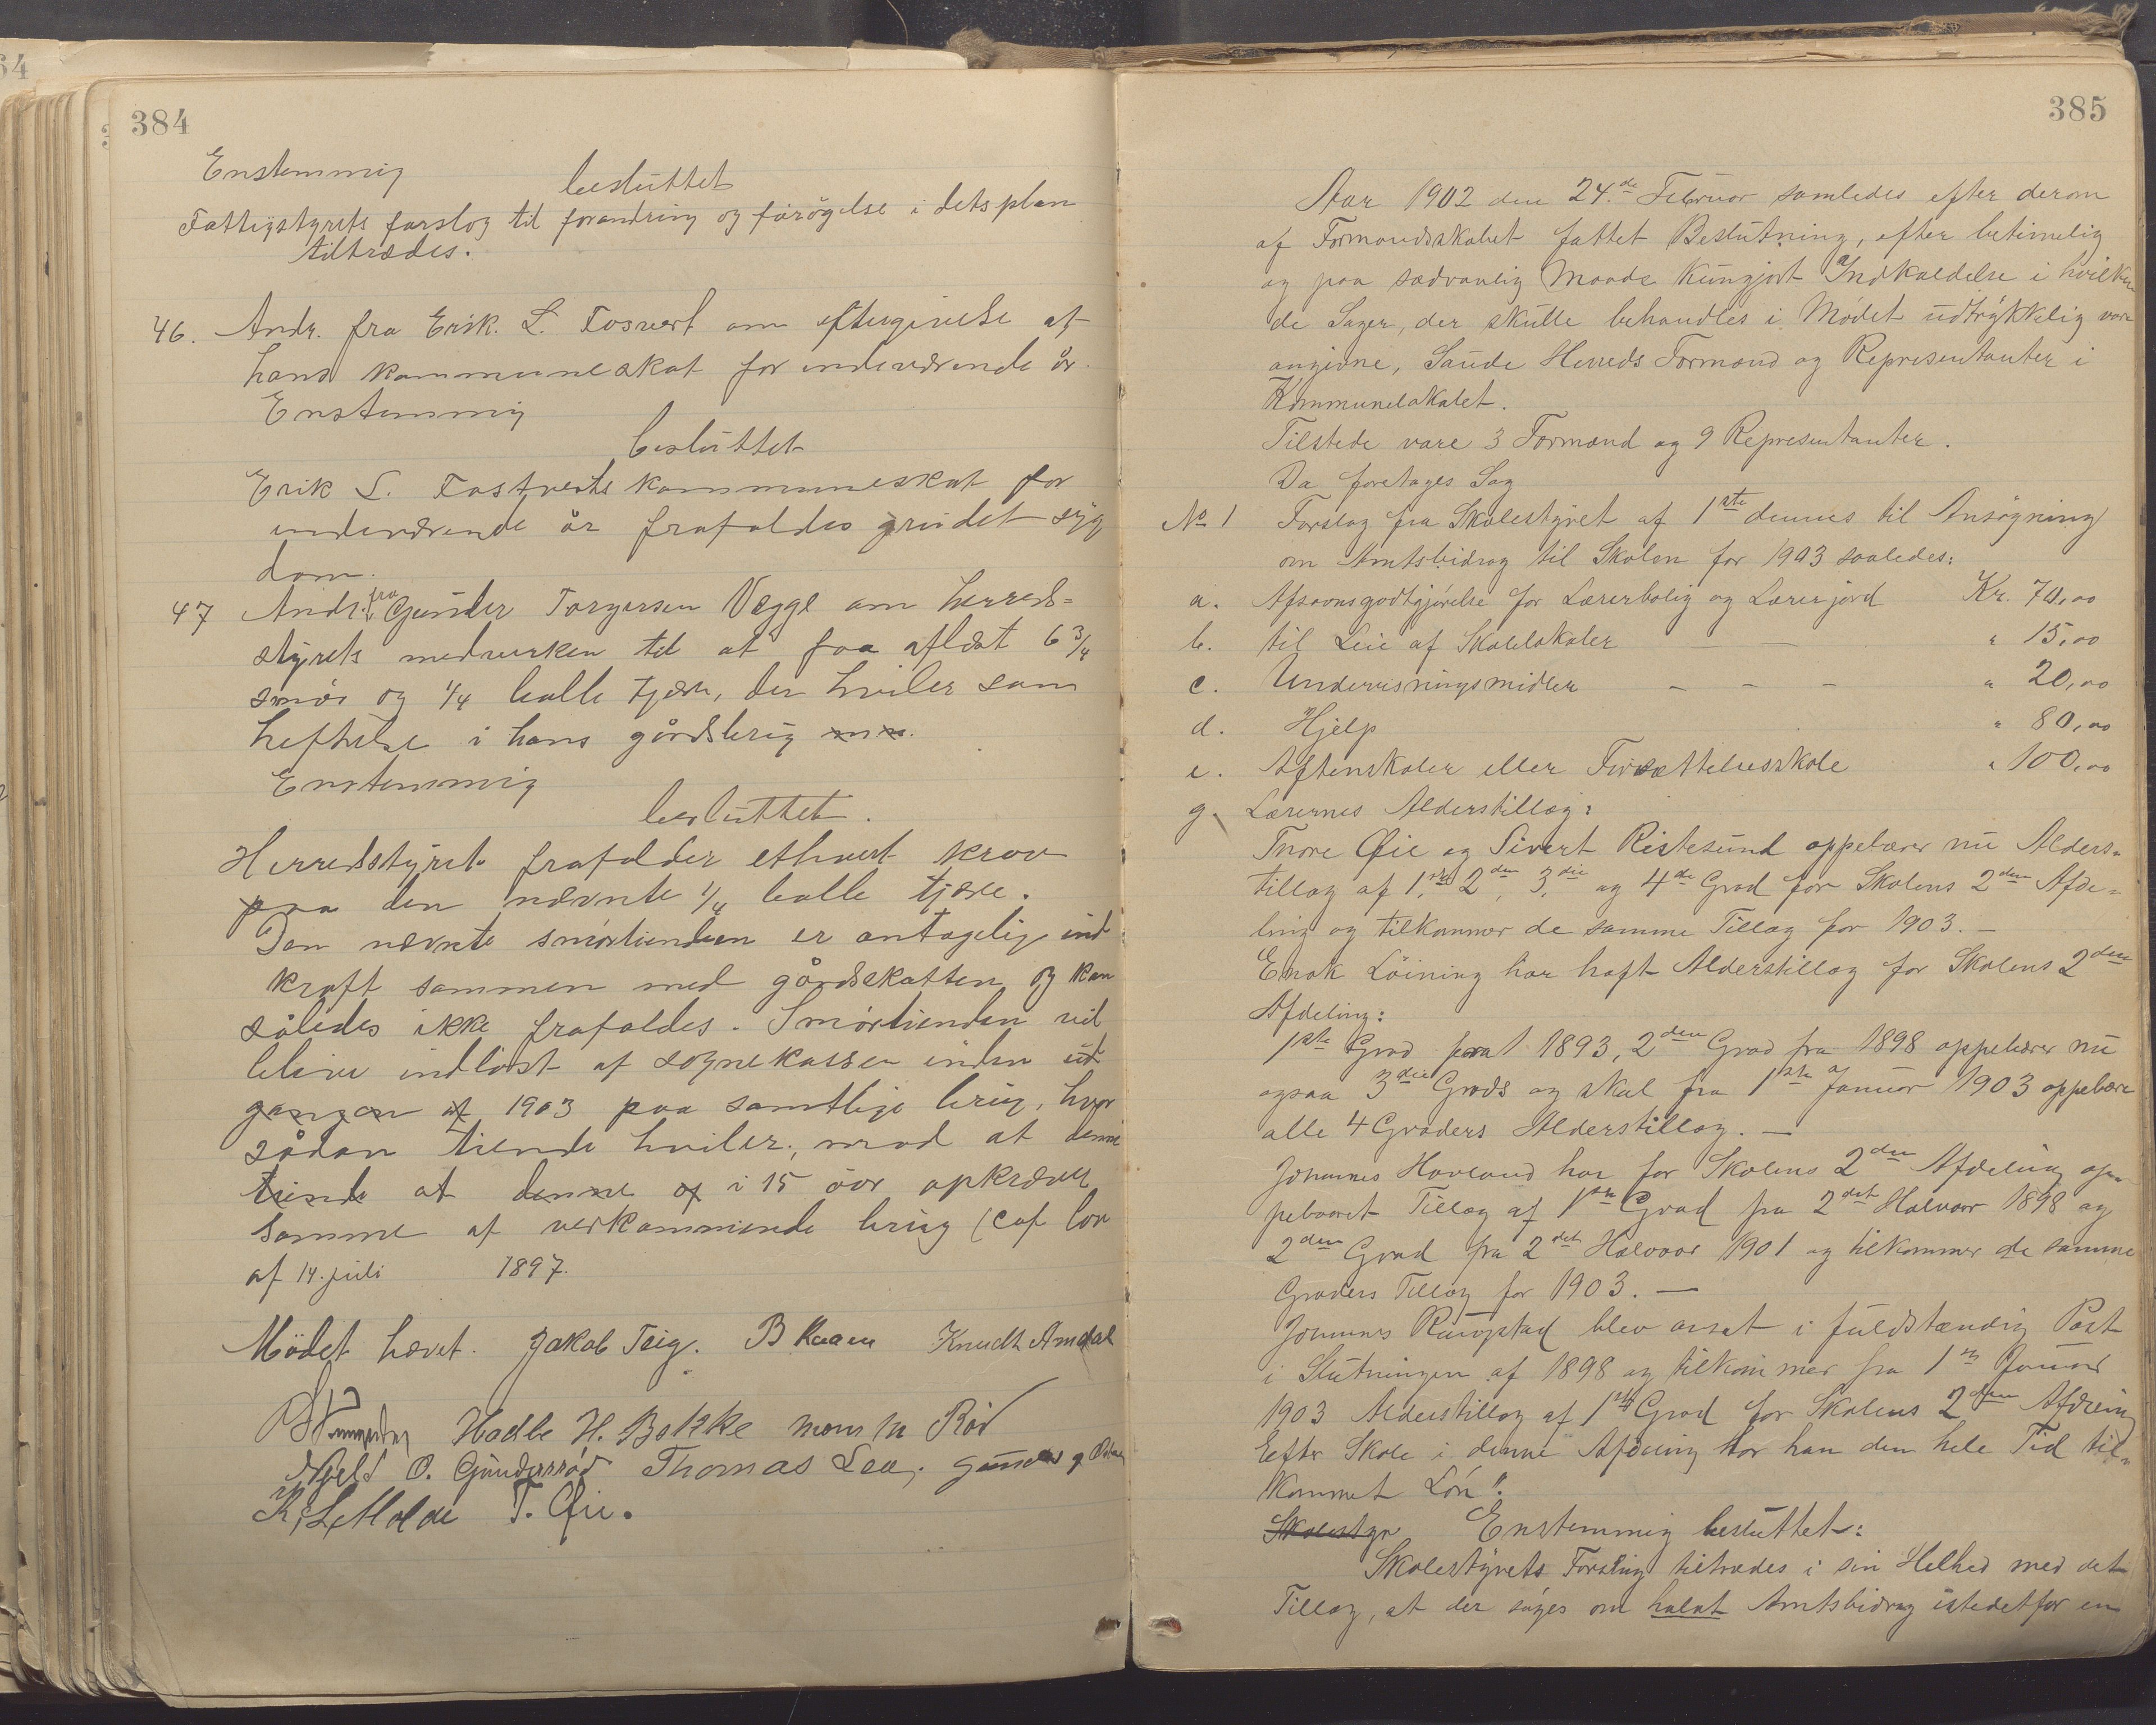 384
Enstemmig
besluttet
Fattigstyrets forslag til forandring og forøgelse i dets plan
tiltrædes.
46. Andr. fra Erik. L. Fosvert om eftergivelse af
hans kommuneskat for indeværende år.
Enstemmig
besluttet
Erik L. Fostverts kommuneskat for
indeværende år frafaldes grundet syg
dom.
47 Andr. fra Gunder Torgersen Vegge om herreds=
styrets medvirken til at faa afløst 6 3/4
smør og 1/4 balle tjære, der hviler som
heftelse i hans gårdsbrug
Enstemmig
besluttet.
Herredsstyret frafalder ethvert krav
paa den nævnte 1/4 balle tjære.
Den nævnte smørtienden er antagelig ind
kræft sammen med gårdskatten og kan
således ikke frafaldes. Smørtienden vil
blive indløst af sognekassen inden ud
gangen af 1903 paa samtlige brug, hvor
sådan tiende hviler, mod at denne
tiende at denne af i 15 aar opkræver
samme af vedkommende brug (cof lov
af 14. juli 1897.
Mödet hævet. Jakob Teig. B Kaaen Knudt Amdal
Hadle H. Bakke Mons M Röd
Njeld O. Gundersröd Thomas Lea,
K. L. Molde T. Öie.
385
Aar 1902 den 24.de Februar samledes efter derom
af Formandsskabet fattet Beslutning, efter betimelig
og paa sædvanlig Maade kungjort Indkaldelse i hvilken
de Sager, der skulle behandles i Mödet udtrykkelig vare
angivne, Saude Herreds Formænd og Representanter i
Kommunelokalet.
Tilstede vare 3 Formænd og 9 Representanter.
Da foretages Sag
No 1 Forslag fra Skolestyret af 1ste dennes til Ansøgning
om Amtsbidrag til Skolen for 1903 saaledes:
a. Afsavnsgodtgjørelse for Lærerbolig og Lærerjord Kr. 70,00
b. til Leie af Skolelokaler — — " 15,00
c. Undervisningsmidler - - - " 20,00
d. Hjelp " 80,00
e. Aftenskoler eller Fortsættelsesskole " 100,00
g. Lærernes Alderstillæg:
Tnore Öie og Sivert Ristesund oppebærer nu Alders=
tillæg af 1.ste 2den, 3.die og 4de Grad for Skolens 2den Afde=
ling og tilkommer de samme Tillæg for 1903. —
Enok Löining har havt Alderstillæg for Skolens 2den
Afdeling:
1ste Grad fra 1 1893, 2den Grad fra 1898 oppebærer nu
ogsaa 3die Grads og skal fra 1ste Januar 1903 oppebære
alle 4 Graders Alderstillæg. —
Johannes Hovland har for Skolens 2den Afdeling op=
pebaaret Tillæg af 1ste Grad fra 2det Halvaar 1898 og
2den Grad fra 2det Halvaar 1901 og tilkommer de samme
Graders Tillæg for 1903. —
Johannes blev ansat i fuldstændig Post
i Slutningen af 1898 og tilkommer fra 1ste Januar
1903 Alderstillæg af 1ste Grad for Skolens 2den Afdeling
Efter Skole i denne Afdeling har han den hele Tid til=
kommet Lön".
Skolestyr Enstemmig besluttet:
Skolestyrets Forslag tiltrædes i sin Helhed med det
Tillæg, at der søges om halvt Amtsbidrag istedetfor en